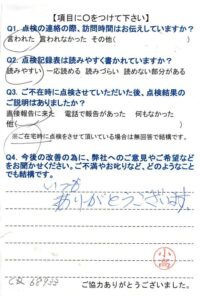 【項目に○をつけて下さい】
Q1. 点検の連絡の際、訪問時間はお伝えしていますか?
言われた 言われなかった その他( )
Q2. 点検記録表は読みやすく書かれていますか?
読みやすい 一応読める 読みづらい 読めない部分がある
Q3. ご不在時に点検させていただいた後、点検結果の
ご説明はありましたか?
直接報告に来た 電話で報告があった 何もなかった
他( )
※ご在宅時に点検をさせて頂いている場合は無回答で結構です。
Q4. 今後の改善の為に、弊社へのご意見やご希望など
をお聞かせください。ご不満やお叱りなど、どのようなこと
でも結構です。
いつも
ありがとうございます。
小高
ご協力ありがとうございました。